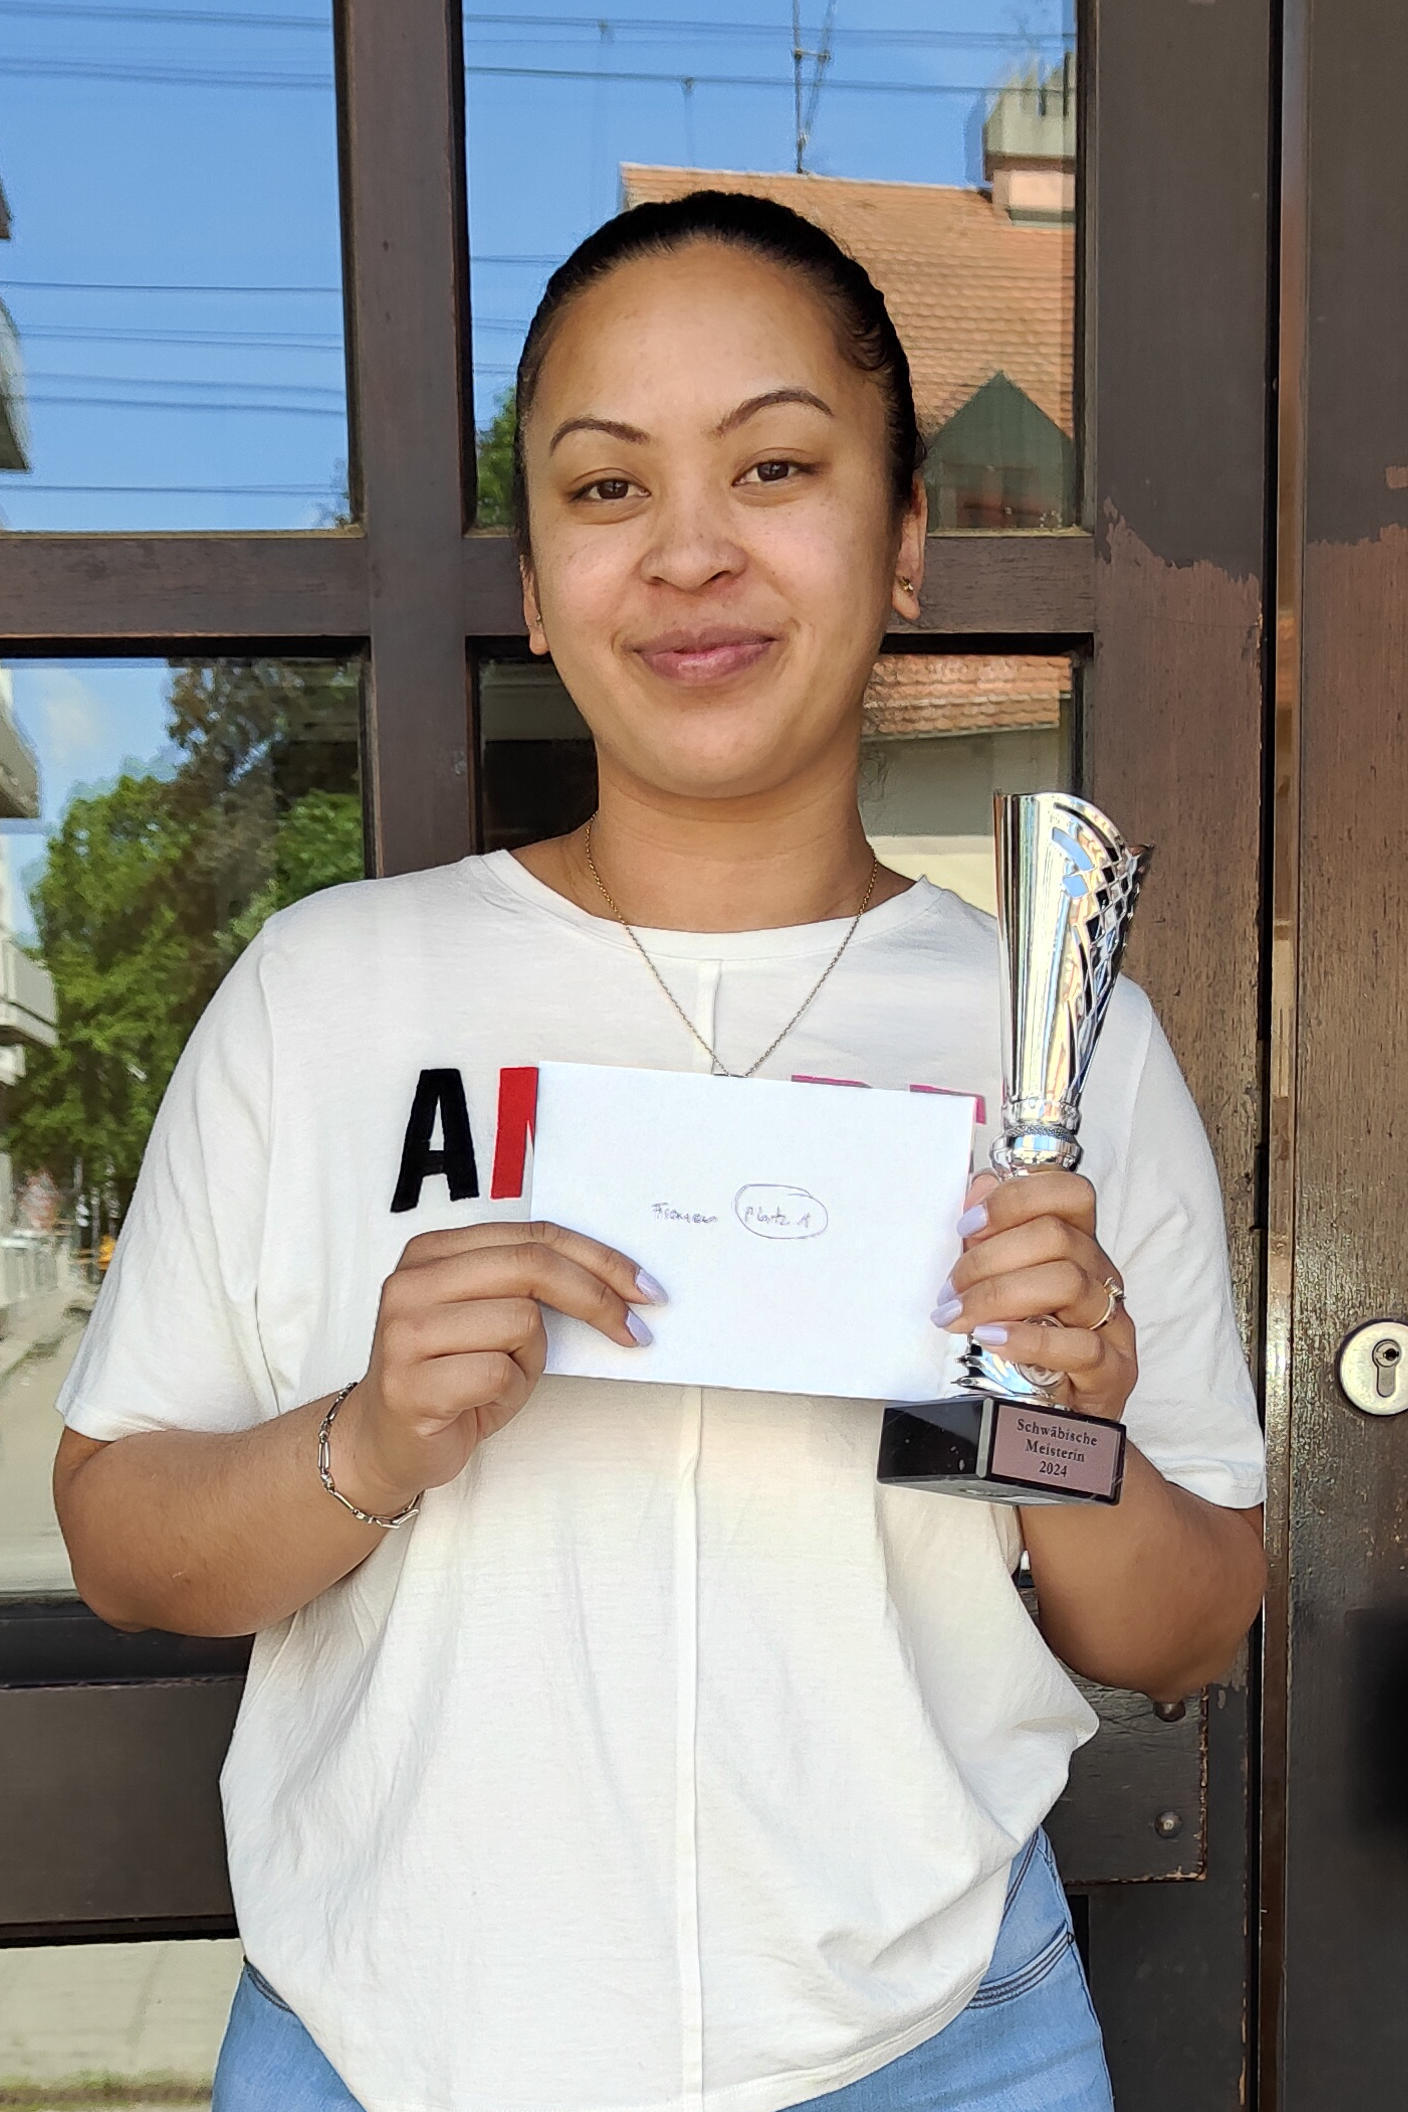 A
Frauen Platz 1
Schwäbische
Meisterin
2024